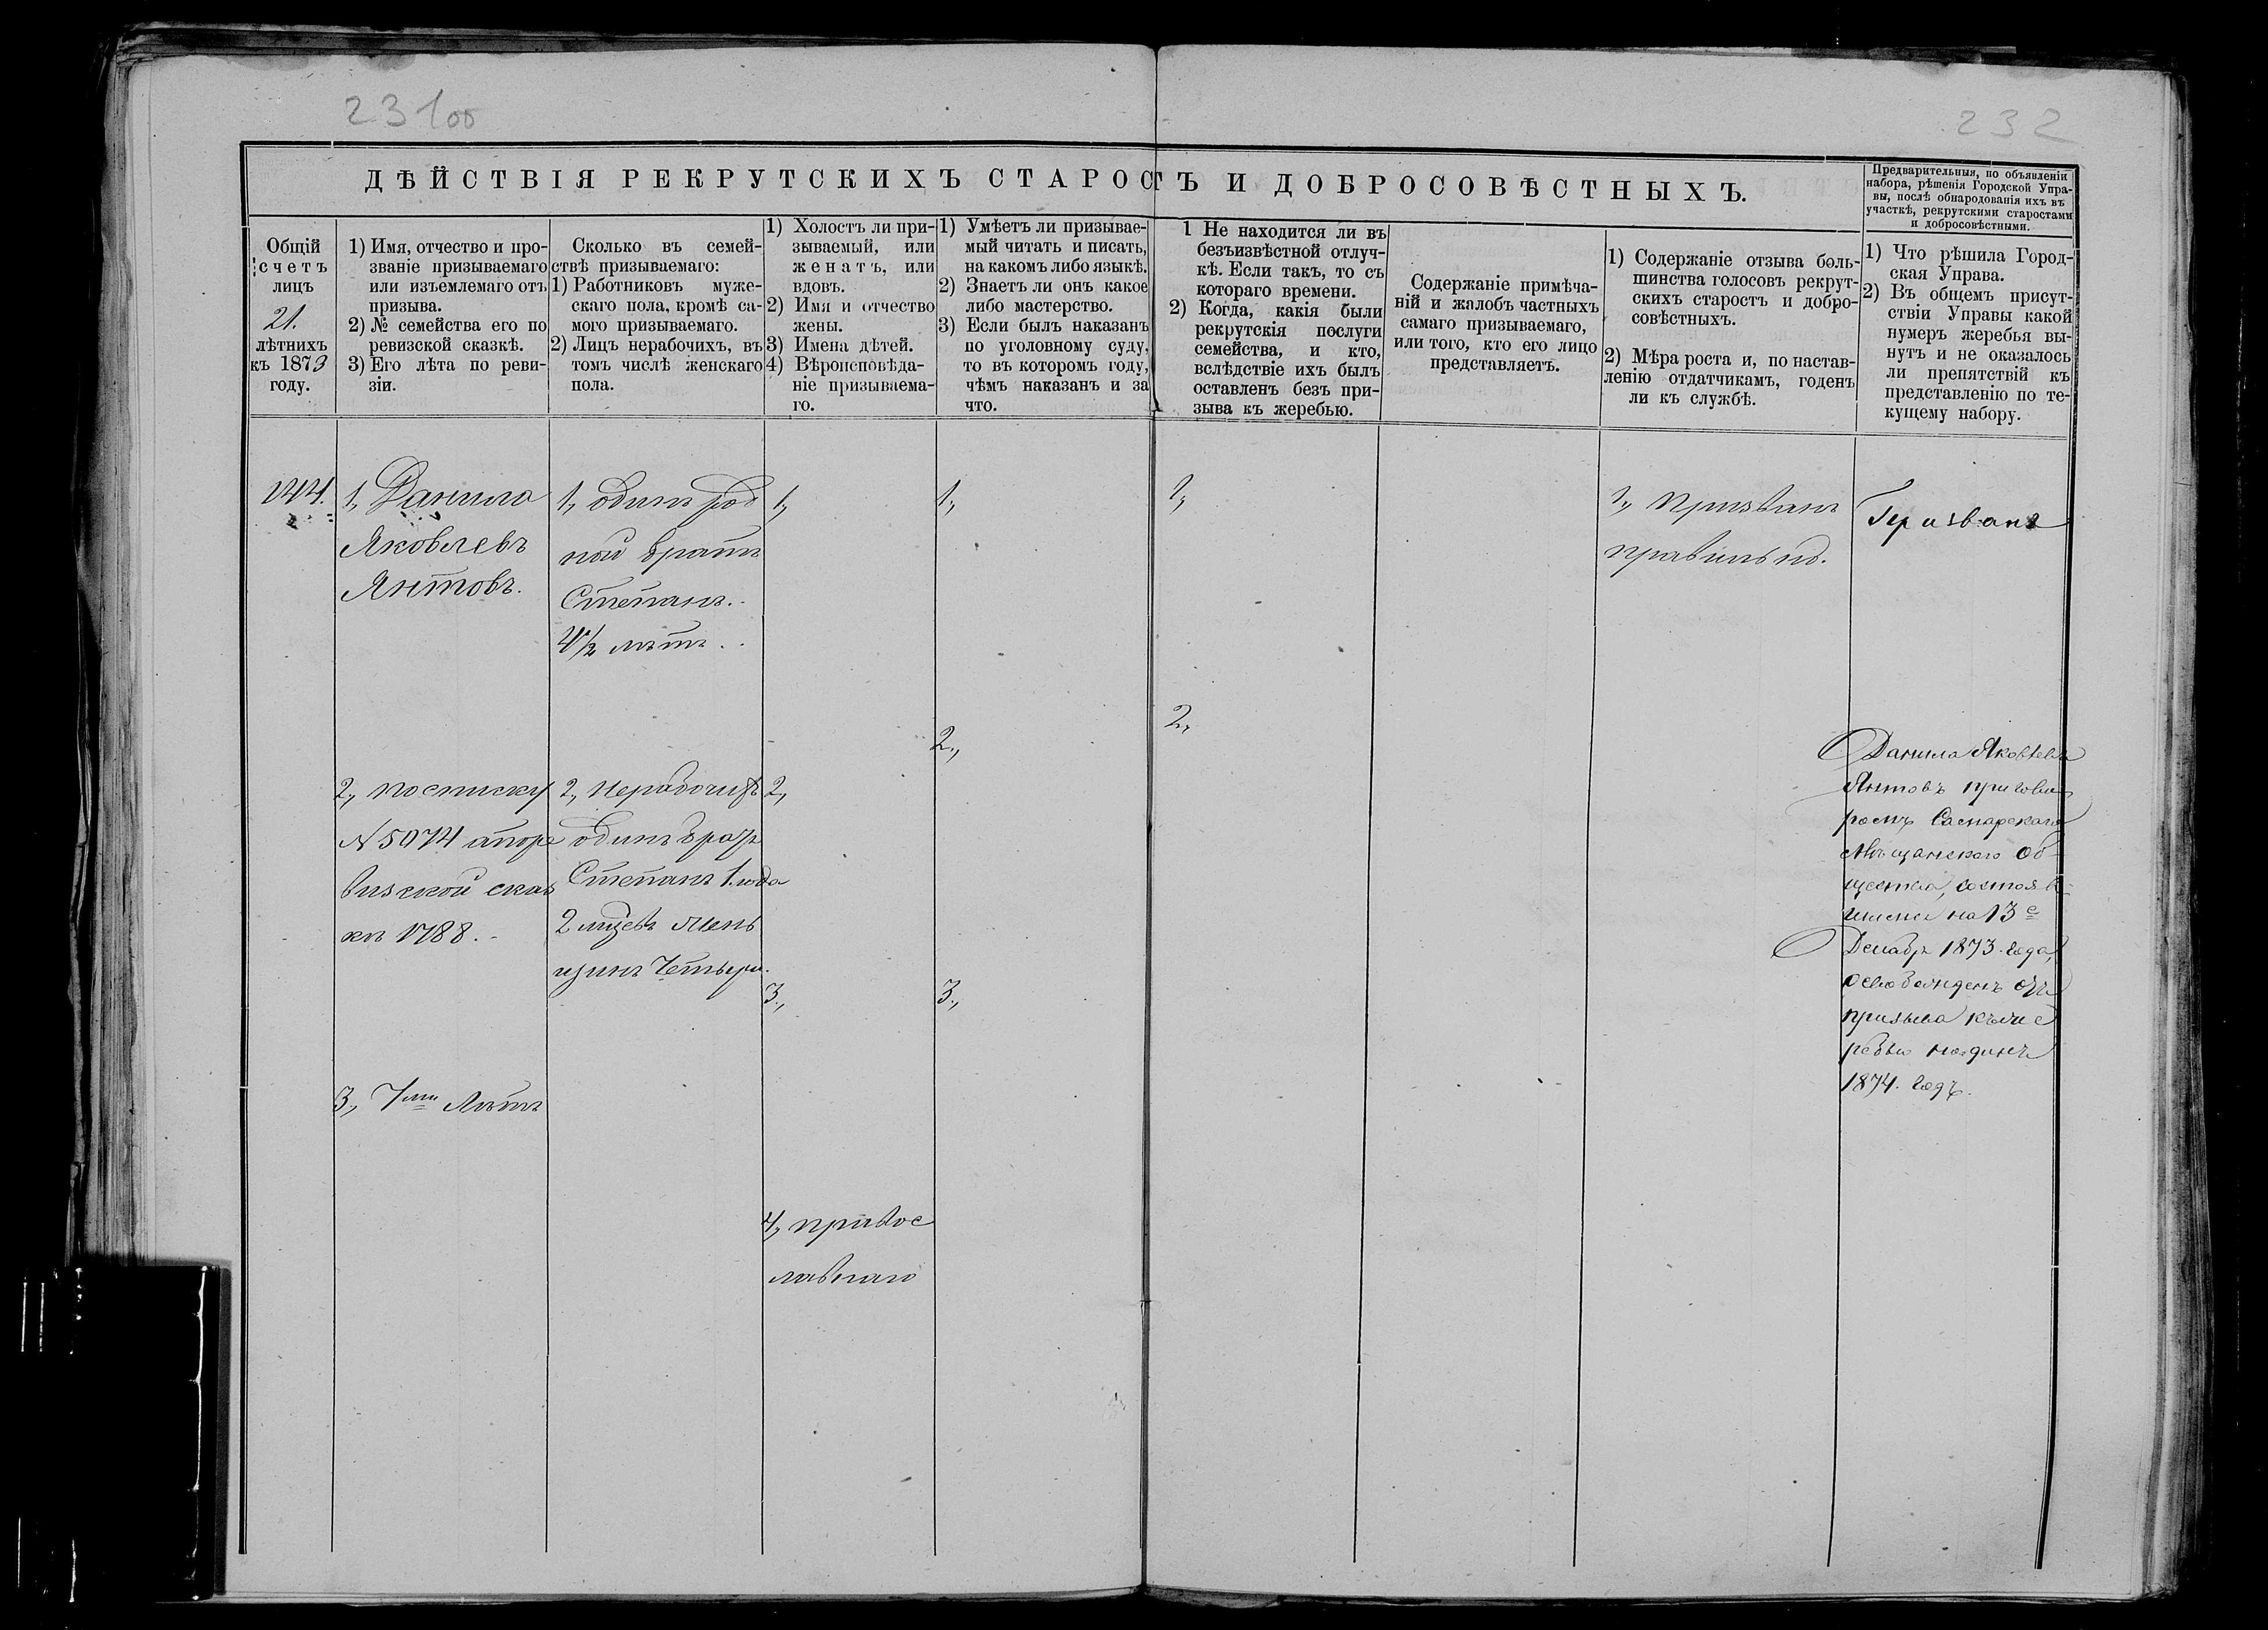 231об
232
ДѢЙСТВІЯ РЕКРУТСКИХЪ СТАРОСТЪ И ДОБРОСОВѢСТНЫХЪ.
Предварительныя, по объявленіи
набора, рѣшенія Городской Упра-
вы, послѣ обнародованія ихъ въ
участкѣ, рекрутскими старостами
и добросовѣстными.
Общій
счетъ
лицъ
21.
лѣтнихъ
къ 1873
году.
1) Имя, отчество и про-
званіе призываемаго
или изъемлемаго отъ
призыва.
2) № семейства его по
ревизской сказкѣ.
3) Его лѣта по реви-
зіи.
Сколько въ семей-
ствѣ призываемаго:
1) Работниковъ муже-
скаго пола, кромѣ са-
мого призываемаго.
2) Лицъ нерабочихъ, въ
томъ числѣ женскаго
пола.
1) Холостъ ли при-
зываемый, или
женатъ, или
вдовъ.
2) Имя и отчество
жены.
3) Имена дѣтей.
4) Вѣроисповѣда-
ніе призываема-
го.
1) Умѣетъ ли призывае-
мый читать и писать,
на какомъ либо языкѣ.
2) Знаетъ ли онъ какое
либо мастерство.
3) Если былъ наказанъ
по уголовному суду,
то въ которомъ году,
чѣмъ наказанъ и за
что.
1 Не находится ли въ
безъизвѣстной отлуч-
кѣ. Если такъ, то съ
котораго времени.
2) Когда, какія были
рекрутскія послуги
семейства, и кто,
вслѣдствіе ихъ былъ
оставленъ безъ при-
зыва къ жеребью.
Содержаніе примѣча-
ній и жалобъ частныхъ
самаго призываемаго,
или того, кто его лицо
представляетъ.
1) Содержаніе отзыва боль-
шинства голосовъ рекрут-
скихъ старостъ и добро-
совѣстныхъ.
2) Мѣра роста и, по настав-
ленію отдатчикамъ, годенъ
ли къ службѣ.
1) Что рѣшила Город-
ская Управа.
2) Въ общемъ присут-
ствіи Управы какой
нумеръ жеребья вы-
нутъ и не оказалось
ли препятствій къ
представленію по те-
кущему набору.
144.
1, Данило
Яковлевъ
Янтовъ.
2, по списку
№ 5074 апоре
визской сказ
къ 1788.
3, 7ми Лѣтъ
1, одинъ род
ной братъ
Степанъ.
4½ лѣтъ.
2, Нерабочихъ
одинъ братъ
Степанъ 1 года
2 лицевъ жень
щинъ Четыри.
1,
2,
3.,
4, правос
лавнаго
1,
2.,
3.,
1,
2,
1., Призванъ
правильно.
Призванъ
Данила Яковлевъ
Янтовъ пригово
ромъ Самарскаго
Мѣщанскаго Об-
щества, состояв-
шимся на 13е
Декабр 1873 года,
освобожденъ отъ
призыва къ же
ребью на одинъ
1874. годъ.